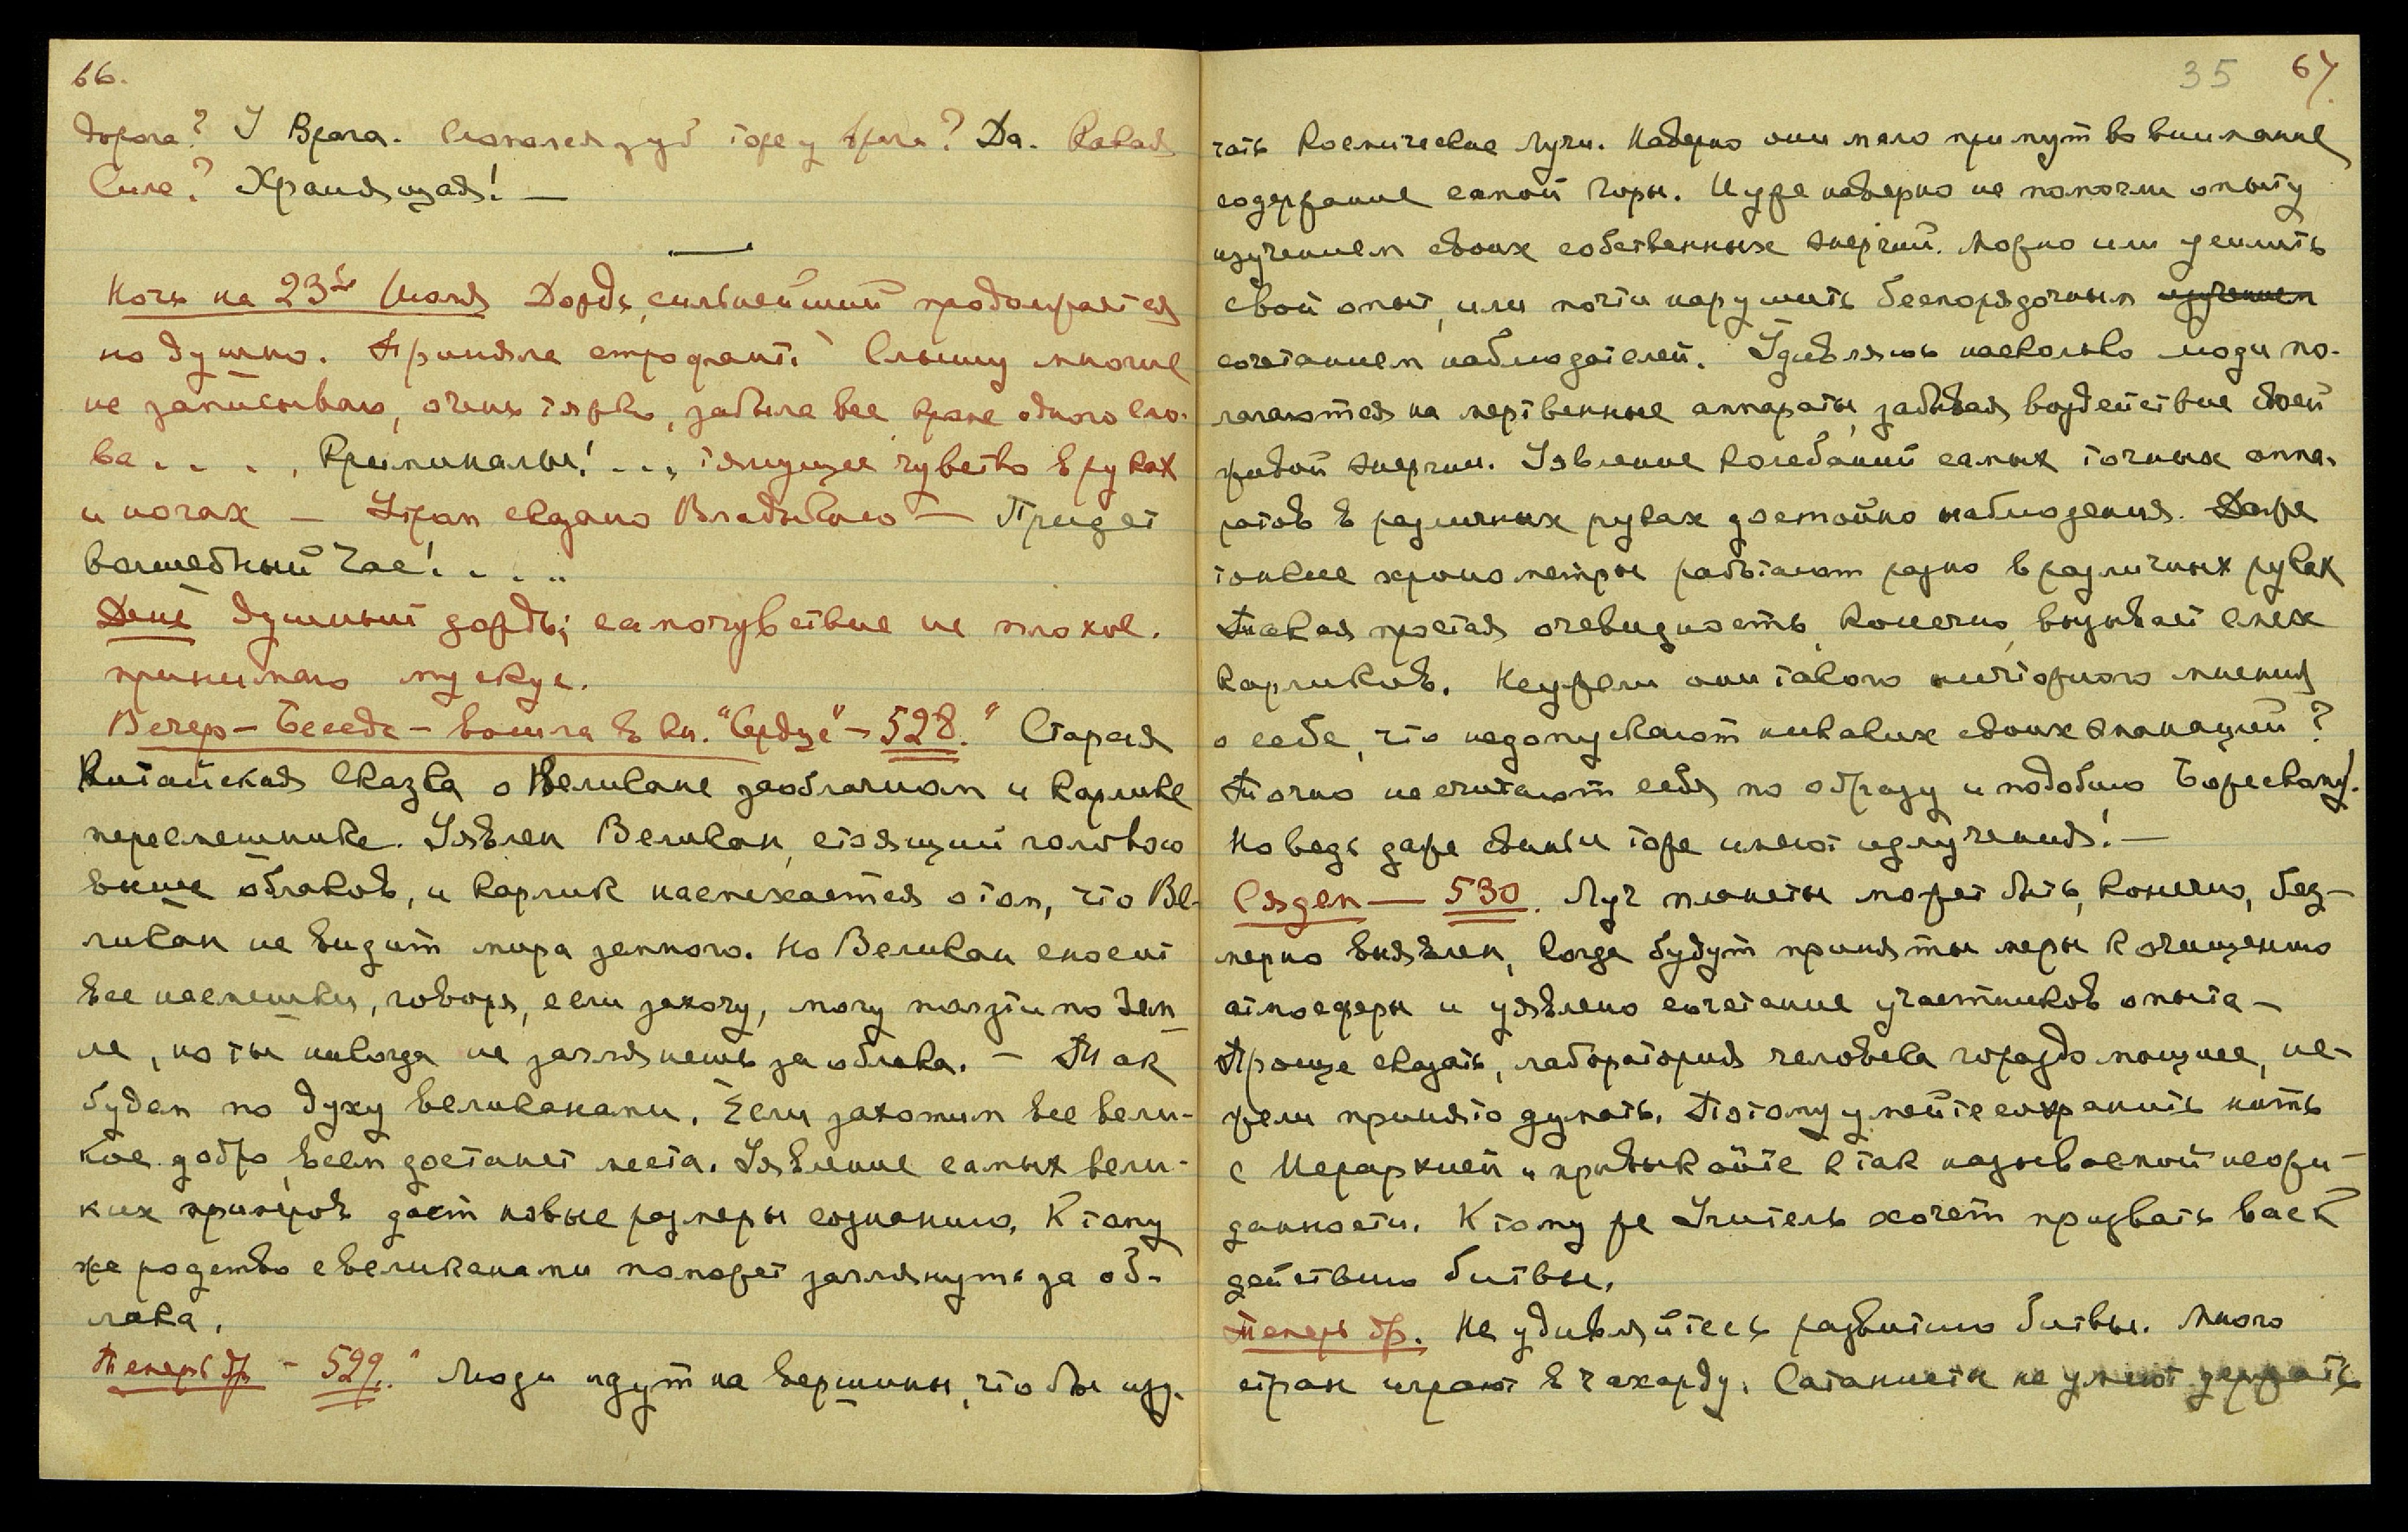 66.
дорога? У Врага. Сломался зуб тоже у врага? Да. Какая
Сила? Хранящая! —
Ночь на 23ье Июля Дождь сильнейший продолжается
но душно. Приняла строфант. Слышу многие
не записываю, очень тяжко, забыла все кроме одного сло-
ва . . . . , Криминалы! . . . , тянущее чувство в руках
и ногах — Утром сказано Владыкою — Придет
волшебный Час! . . . .
Дне душный дождь; самочувствие не плохое.
принимаю мускус.
Вечер – Беседа – вошла в кн. "Сердце" – 528." Старая
Китайская сказка о Великане заоблачном и карлике
пересмешнике. Уявлен Великан, стоящий головою
выше облаков, и карлик насмехается о том, что Ве-
ликан не видит мира земного. Но Великан сносит
все насмешки, говоря, если захочу, могу ползти по Зем
ле, но ты никогда не заглянешь за облака. – Так
будем по духу великанами. Если захотим все вели-
кое добро, всем достанет места. Уявление самых вели-
ких примеров даст новые размеры сознанию. К тому
же родство с великанами поможет заглянуть за об-
лака.
Теперь др – 529." Люди идут на вершины, что бы изу-
35 67.
чать Космические Лучи. Наверно они мало примут во внимание
содержание самой Горы. И уже наверно не помогли опыту
изучением своих собственных энергий. Можно или усилить
свой опыт, или почти нарушить беспорядочным изучением
сочетанием наблюдателей. Удивляюсь насколько люди по-
лагаются на мертвенные аппараты, забывая воздействие своей
живой энергии. Уявление колебаний самых точных аппа-
ратов в различных руках достойно наблюдения. Даже
тонкие хронометры работают разно в различных руках
Такая простая очевидность, конечно, вызывает смех
карликов. Неужели они такого ничтожного мнения
о себе, что недопускают никаких своих эманаций?
Точно не считают себя по образу и подобию Божескому!
Но ведь даже свиньи тоже имеют излучения! —
Сядем — 530. Луч планеты может быть, конечно, без-
мерно выявлен, когда будут приняты меры к очищению
атмосферы и уявлено сочетание участников опыта –
Проще сказать, лаборатория человека гораздо мощнее, не-
жели принято думать. Поэтому умейте сохранить нить
с Иерархией и привыкайте к так называемой неожи-
данности. К тому же Учитель хочет призвать вас к
действию битвы.
Теперь др. Не удивляйтесь развитию битвы. Много
стран играют в чехарду. Сатанисты не умеют держать